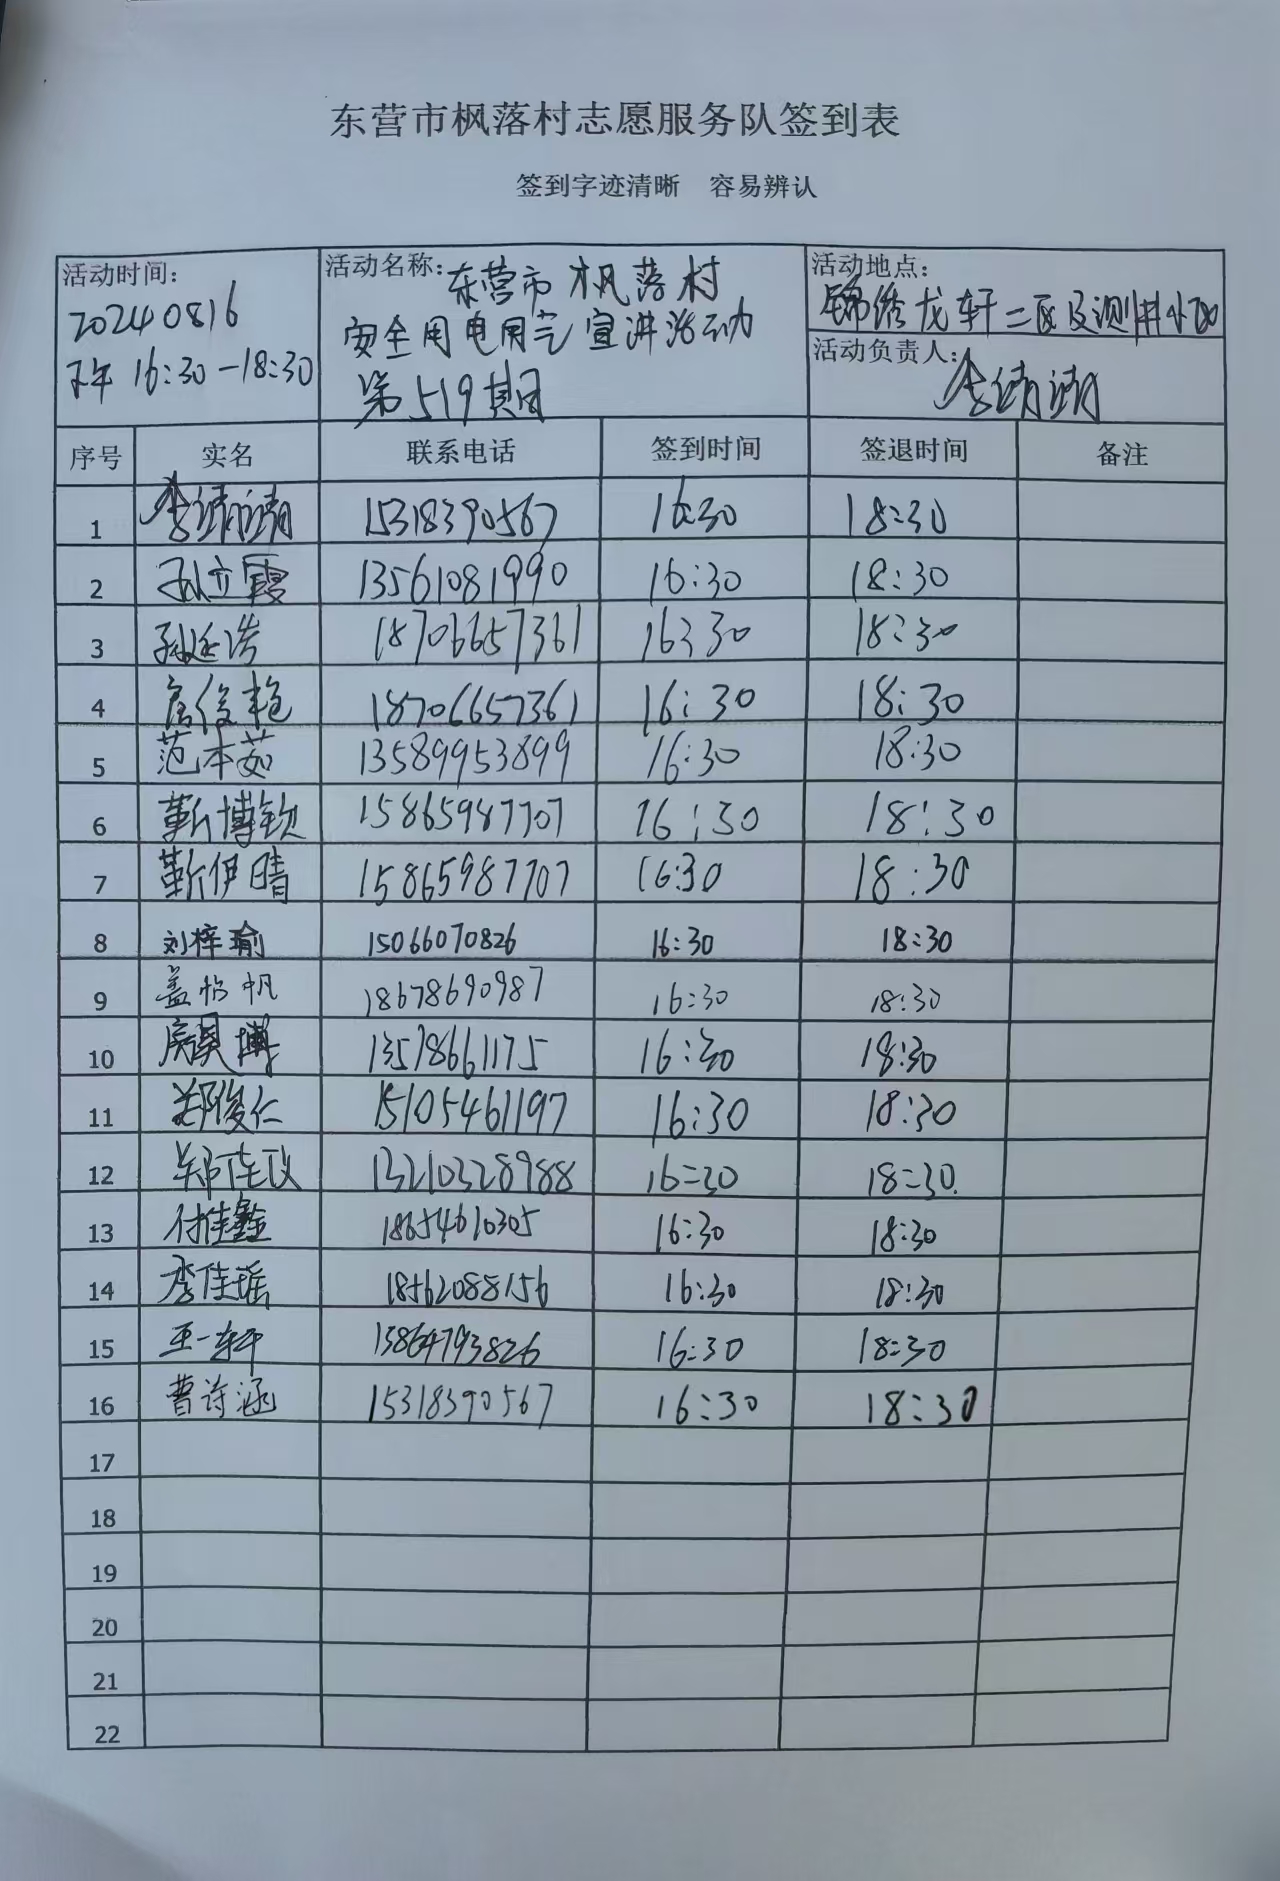 东营市枫落村志愿服务队签到表
签到字迹清晰 容易辨认
活动时间：
20240816
下午 16:30-18:30
活动名称：东营市枫落村
安全用电用气宣讲活动
第519期
活动地点：
锦绣龙轩二区及测井小区
活动负责人：
李靖靖
序号 实名 联系电话 签到时间 签退时间 备注
1 李靖靖 15318390567 16:30 18:30
2 孙立霞 13561081990 16:30 18:30
3 孙廷浩 18706657361 16:30 18:30
4 俊 18706657361 16:30 18:30
5 范本茹 13589953899 16:30 18:30
6 靳博钦 15865987707 16:30 18:30
7 靳伊晴 15865987707 16:30 18:30
8 刘梓瑜 15066070826 16:30 18:30
9 盖怡帆 18678690987 16:30 18:30
10 房昊博 16:30 18:30
11 郑俊仁 15105461197 16:30 18:30
12 郑佳仪 13210328988 16:30 18:30
13 付佳鑫 18654610305 16:30 18:30
14 李佳瑶 18562088156 16:30 18:30
15 王一轩 13864793826 16:30 18:30
16 曹诗涵 15318390567 16:30 18:30
17
18
19
20
21
22